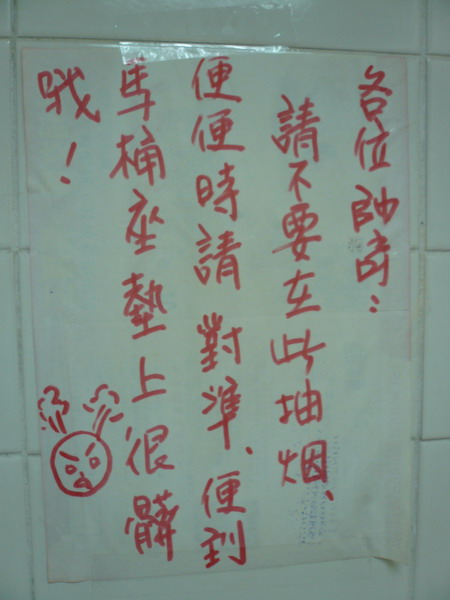 各位帥哥：
請不要在此抽烟、
便便時請對準、便到
馬桶座墊上很髒
哦！